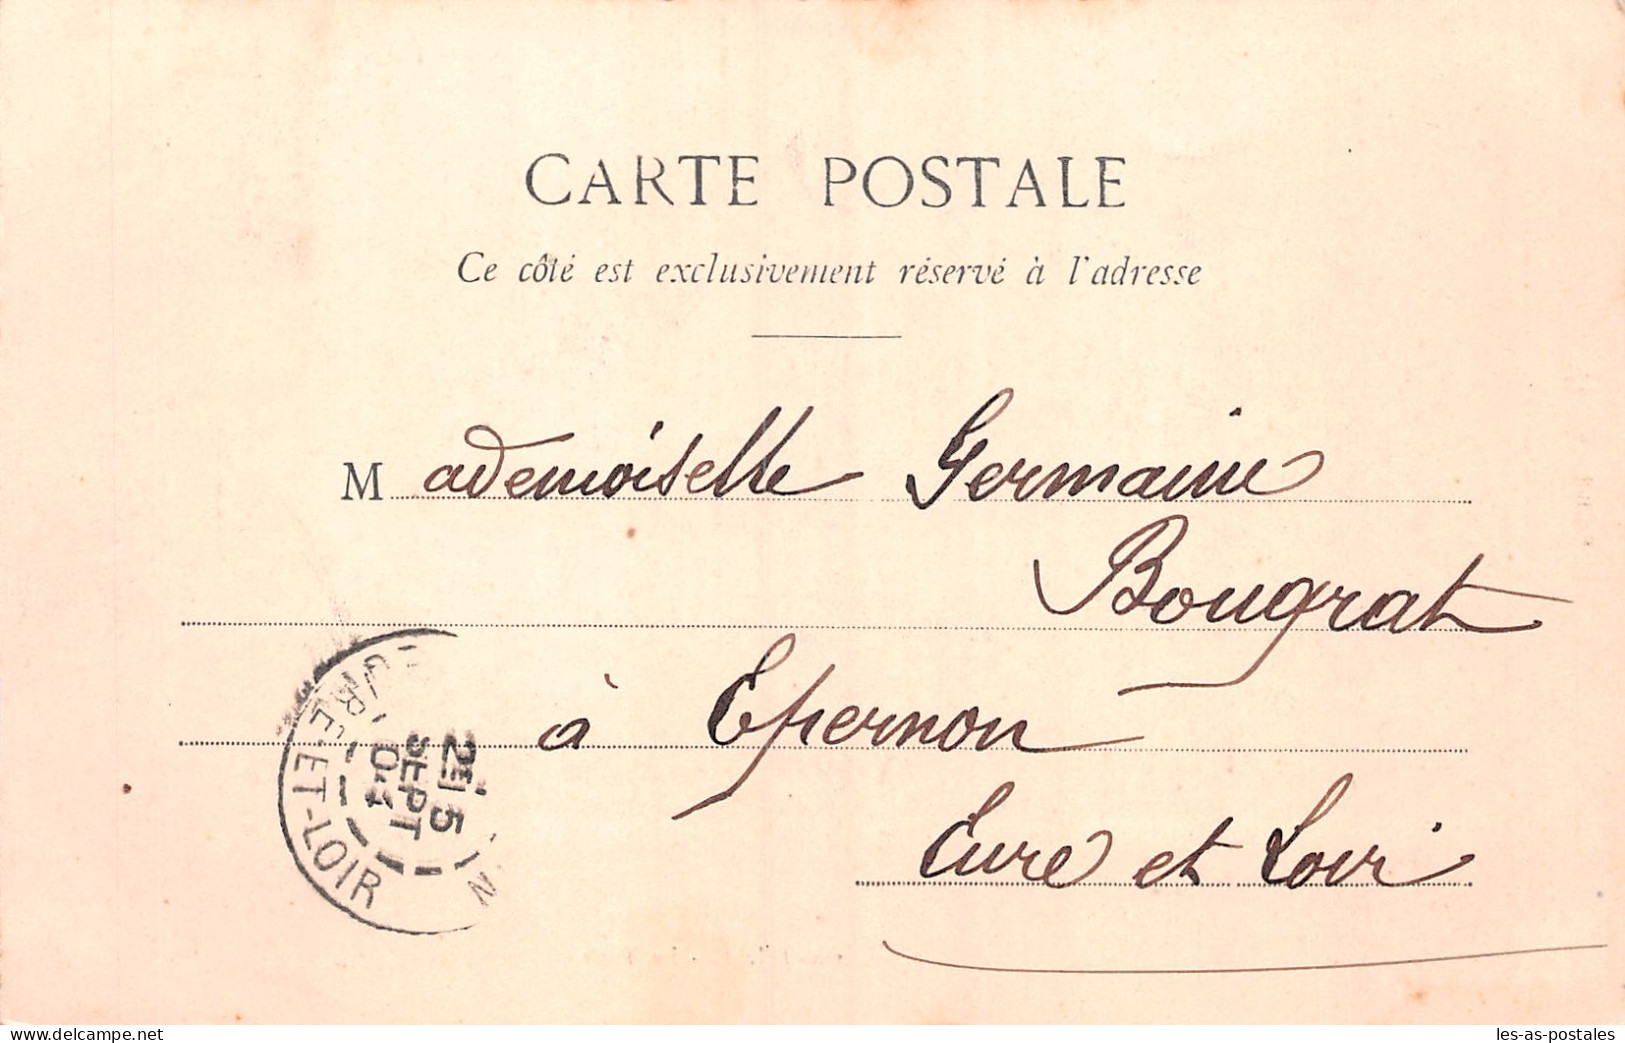 CARTE POSTALE
Ce côté est exclusivement réservé à l'adresse
Mademoiselle Germaine
Bougrat
à Epernon
Eure et Loir
EURE-ET-LOIR
2E 5
SEPT
04
delcampe.net
les-as-postales